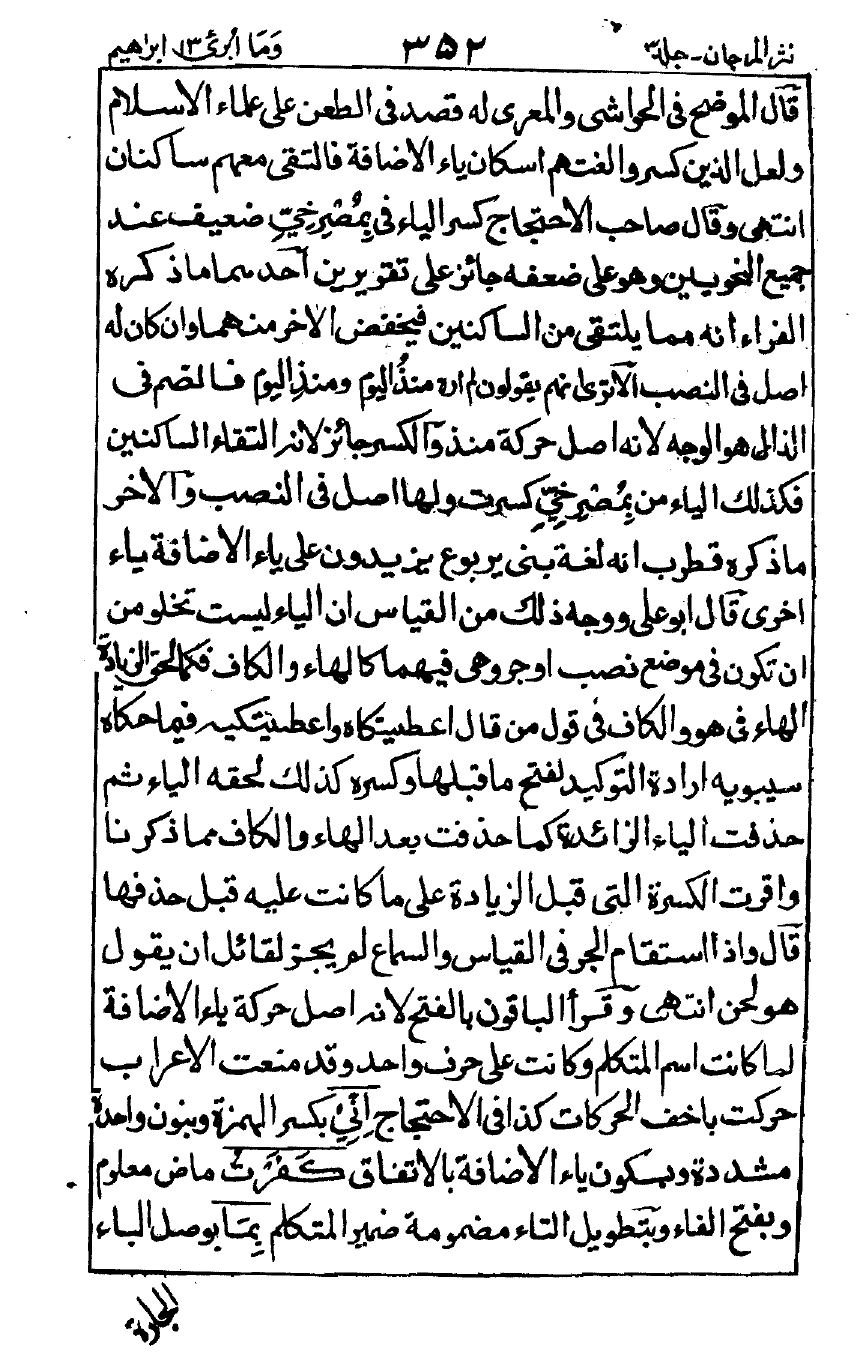 نثر المرجان - جلد٣ ٣٥٢ وَمَا أبرئ ١٣ ابراهيم
قال الموضح فى الحواشى والمعرى له قصد فى الطعن على علماء الاسلام
ولعل الذين كسروا لغتهم اسكان ياء الاضافة فالتقى معهم ساكنان
انتهى وقال صاحب الاحتجاج كسر الياء فى بِمُصْرِخِيِّ ضعيف عند
جميع النحويين وهو على ضعفه جائز على تقريرين أحدهما ما ذكره
الفراء انه مما يلتقى من الساكنين فيخفض الاخر منهما وان كان له
اصل فى النصب الا ترى انهم يقولون لم اره منذُ اليوم ومنذِ اليوم فالضم فى
الذال هو الوجه لانه اصل حركة منذ والكسر جائز لانه التقاء الساكنين
فكذلك الياء من بِمُصْرِخِيِّ كسرت ولها اصل فى النصب والاخر
ما ذكره قطرب انه لغة بنى يربوع يزيدون على ياء الاضافة ياء
اخرى قال ابو على ووجه ذلك من القياس ان الياء ليست تخلو من
ان تكون فى موضع نصب او جر وهى فيهما كالهاء والكاف فكما لحق الزيادة
الهاء فى هو والكاف فى قول من قال اعطيتكاه واعطيتكيه فيما حكاه
سيبويه ارادة التوكيد لفتح ما قبلها وكسره كذلك لحقه الياء ثم
حذفت الياء الزائدة كما حذفت بعد الهاء والكاف مما ذكرنا
واقرت الكسرة التى قبل الزيادة على ما كانت عليه قبل حذفها
قال واذا استقام الجر فى القياس والسماع لم يجز لقائل ان يقول
هو لحن انتهى وقرأ الباقون بالفتح لانه اصل حركة ياء الاضافة
لما كانت اسم المتكلم وكانت على حرف واحد وقد منعت الاعراب
حركت باخف الحركات كذا فى الاحتجاج اِنِّىْ بكسر الهمزة وبنون واحدة
مشددة وبسكون ياء الاضافة بالاتفاق كَفَرْتُ ماض معلوم
وبفتح الفاء وبتطويل التاء مضمومة ضمير المتكلم بِمَا بوصل الباء
الجارة